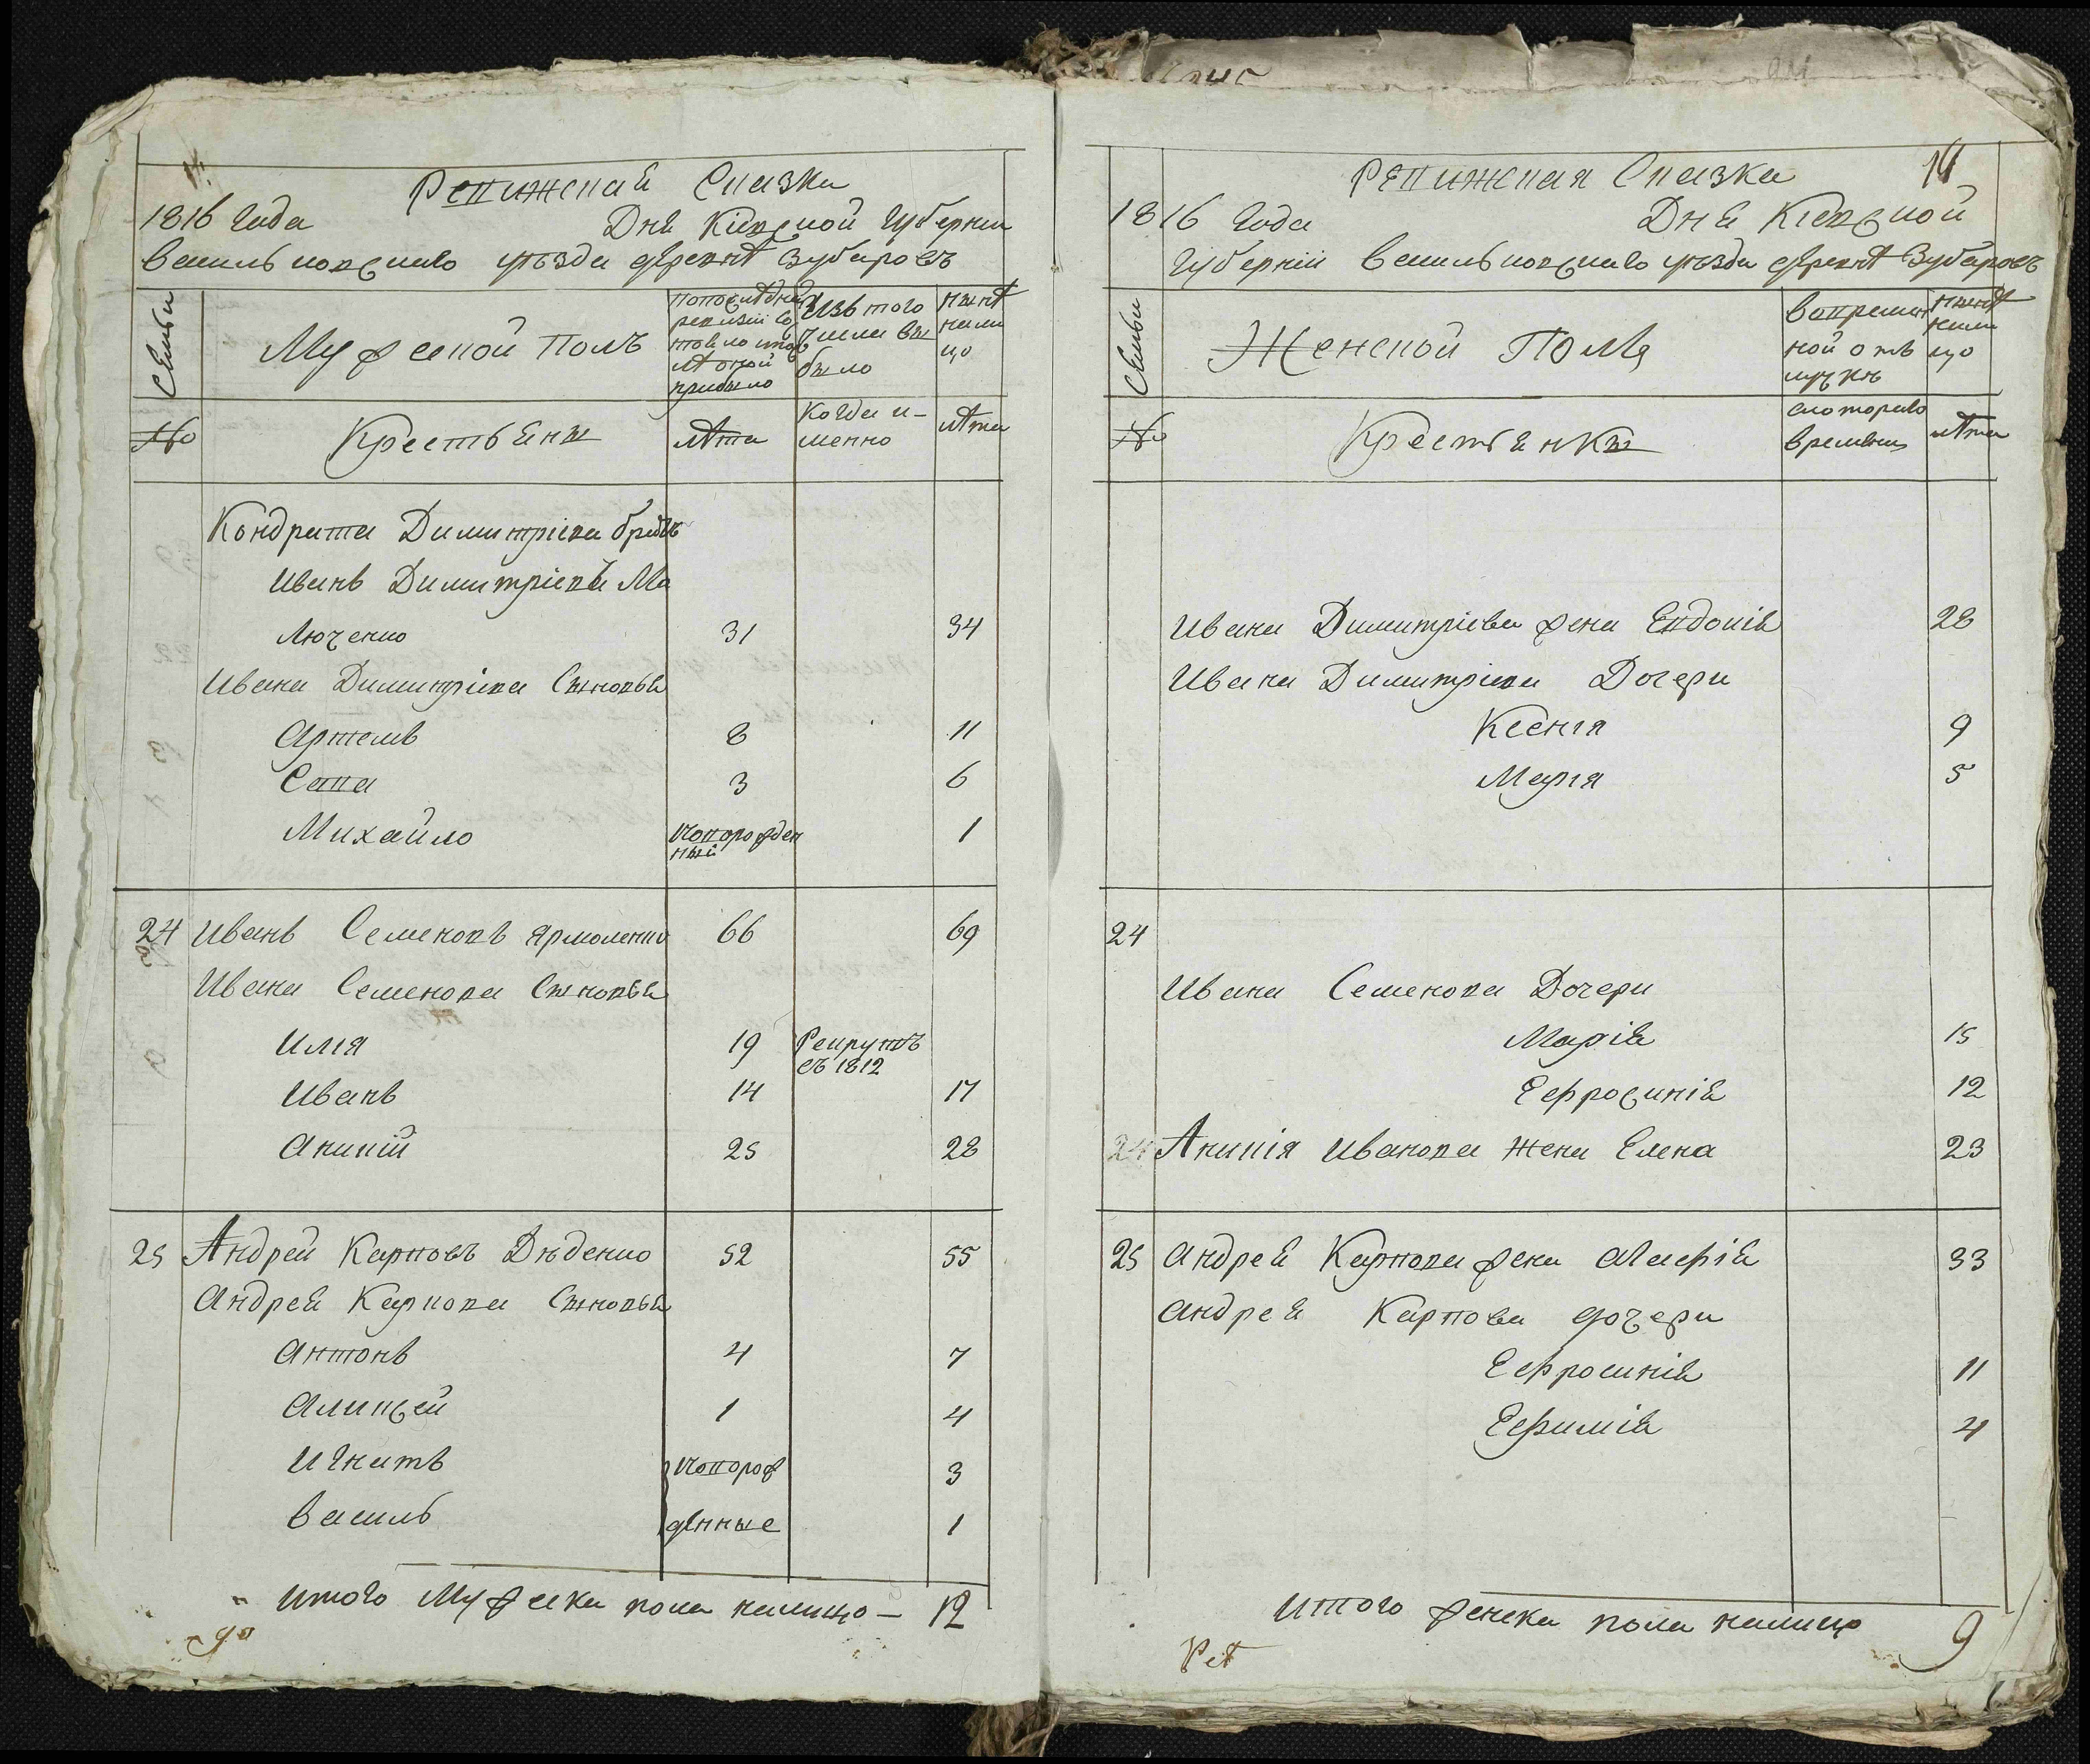 Ревижская Сказка
1816 Года Дня Кіевской Губерніи
Василъковскаго уѣзда деревнѣ Зубаровъ
Семьи
Мужеской Полъ
попослѣдней ревизіи состояло и послѣ оной прибыло
Изъ того числа выбыло
нынѣ налицо
№
Крестьяня
лѣта
Когда именно
лѣта
Кондрата Димитріева братъ
Иванъ Димитріевъ Ма
люченко 31 34
Ивана Димитріева Сыновья
Артемъ 8 11
Сава 3 6
Михайло новорожденный 1
24 Иванъ Семеновъ Ярмоленко 66 69
Ивана Семенова Сыновья
Илія 19 Рекрутъ въ 1812
Иванъ 14 17
Акипій 25 28
25 Андрей Карповъ Дѣденко 52 55
Андрея Карпова Сыновья
Антонъ 4 7
Алипѣй 1 4
Игнатъ новорож 3
Василь денные 1
Итого Мужеска пола налицо — 12
Ревижская Сказка 14
1816 Года Дня Кіевской
Губерніи Василъковскаго уѣзда деревнѣ Зубаровъ
Семьи
Женской Полъ
вовременной отлучкѣ
нынѣ налицо
№
Крестьянкы
скотораго времены
лѣта
Ивана Димитріева жена Евдокія 28
Ивана Димитріева Дочери
Ксенія 9
Марія 5
24
Ивана Семенова Дочери
Марія 15
Ефросинія 12
24 Акипія Иванова жена Елена 23
25 Андрея Карпова жена Марія 33
Андрея Карпова дочери
Ефросинія 11
Ефимія 4
Итого женска пола налицо 9